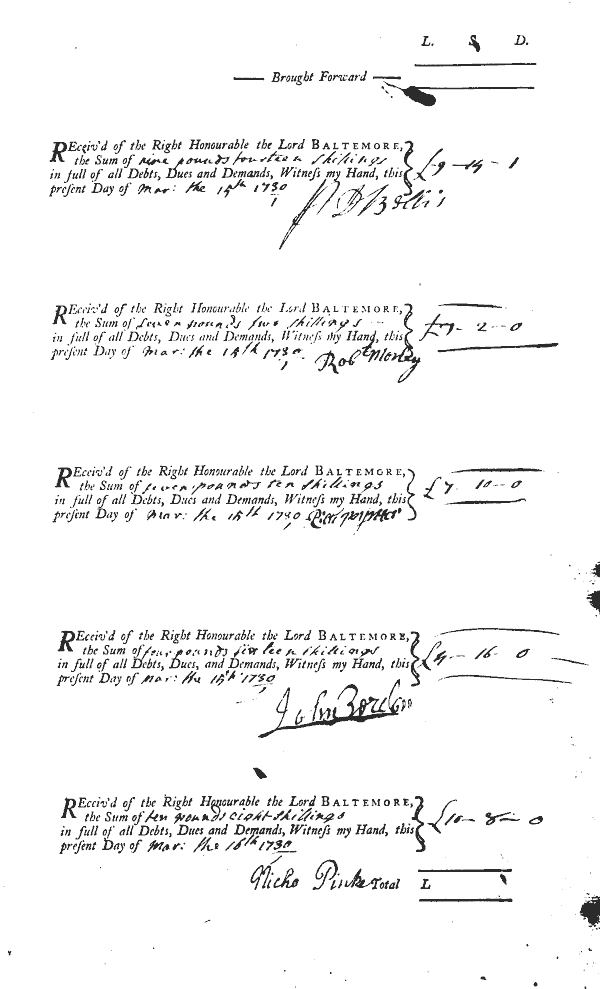 L. S. D.
Brought Forward
REceiv'd of the Right Honourable the Lord BALTEMORE,
the Sum of nine pounds fourteen shillings £9 - 14 - 1
in full of all Debts, Dues and Demands, Witneſs my Hand, this
preſent Day of Mar: the 15th 1730/1
REceiv'd of the Right Honourable the Lord BALTEMORE,
the Sum of seven pounds two shillings £7 - 2 - 0
in full of all Debts, Dues and Demands, Witneſs my Hand, this
preſent Day of Mar: the 15th 1730/1 Robt Morley
REceiv'd of the Right Honourable the Lord BALTEMORE,
the Sum of seven pounds ten shillings £7 - 10 - 0
in full of all Debts, Dues and Demands, Witneſs my Hand, this
preſent Day of Mar: the 15th 1730/1
REceiv'd of the Right Honourable the Lord BALTEMORE,
the Sum of four pounds sixteen shillings £4 - 16 - 0
in full of all Debts, Dues, and Demands, Witneſs my Hand, this
preſent Day of Mar: the 15th 1730/1
John Bordon
REceiv'd of the Right Honourable the Lord BALTEMORE,
the Sum of ten pounds eight shillings £10 - 8 - 0
in full of all Debts, Dues and Demands, Witneſs my Hand, this
preſent Day of Mar: the 16th 1730/1
Nicho Pinke Total L